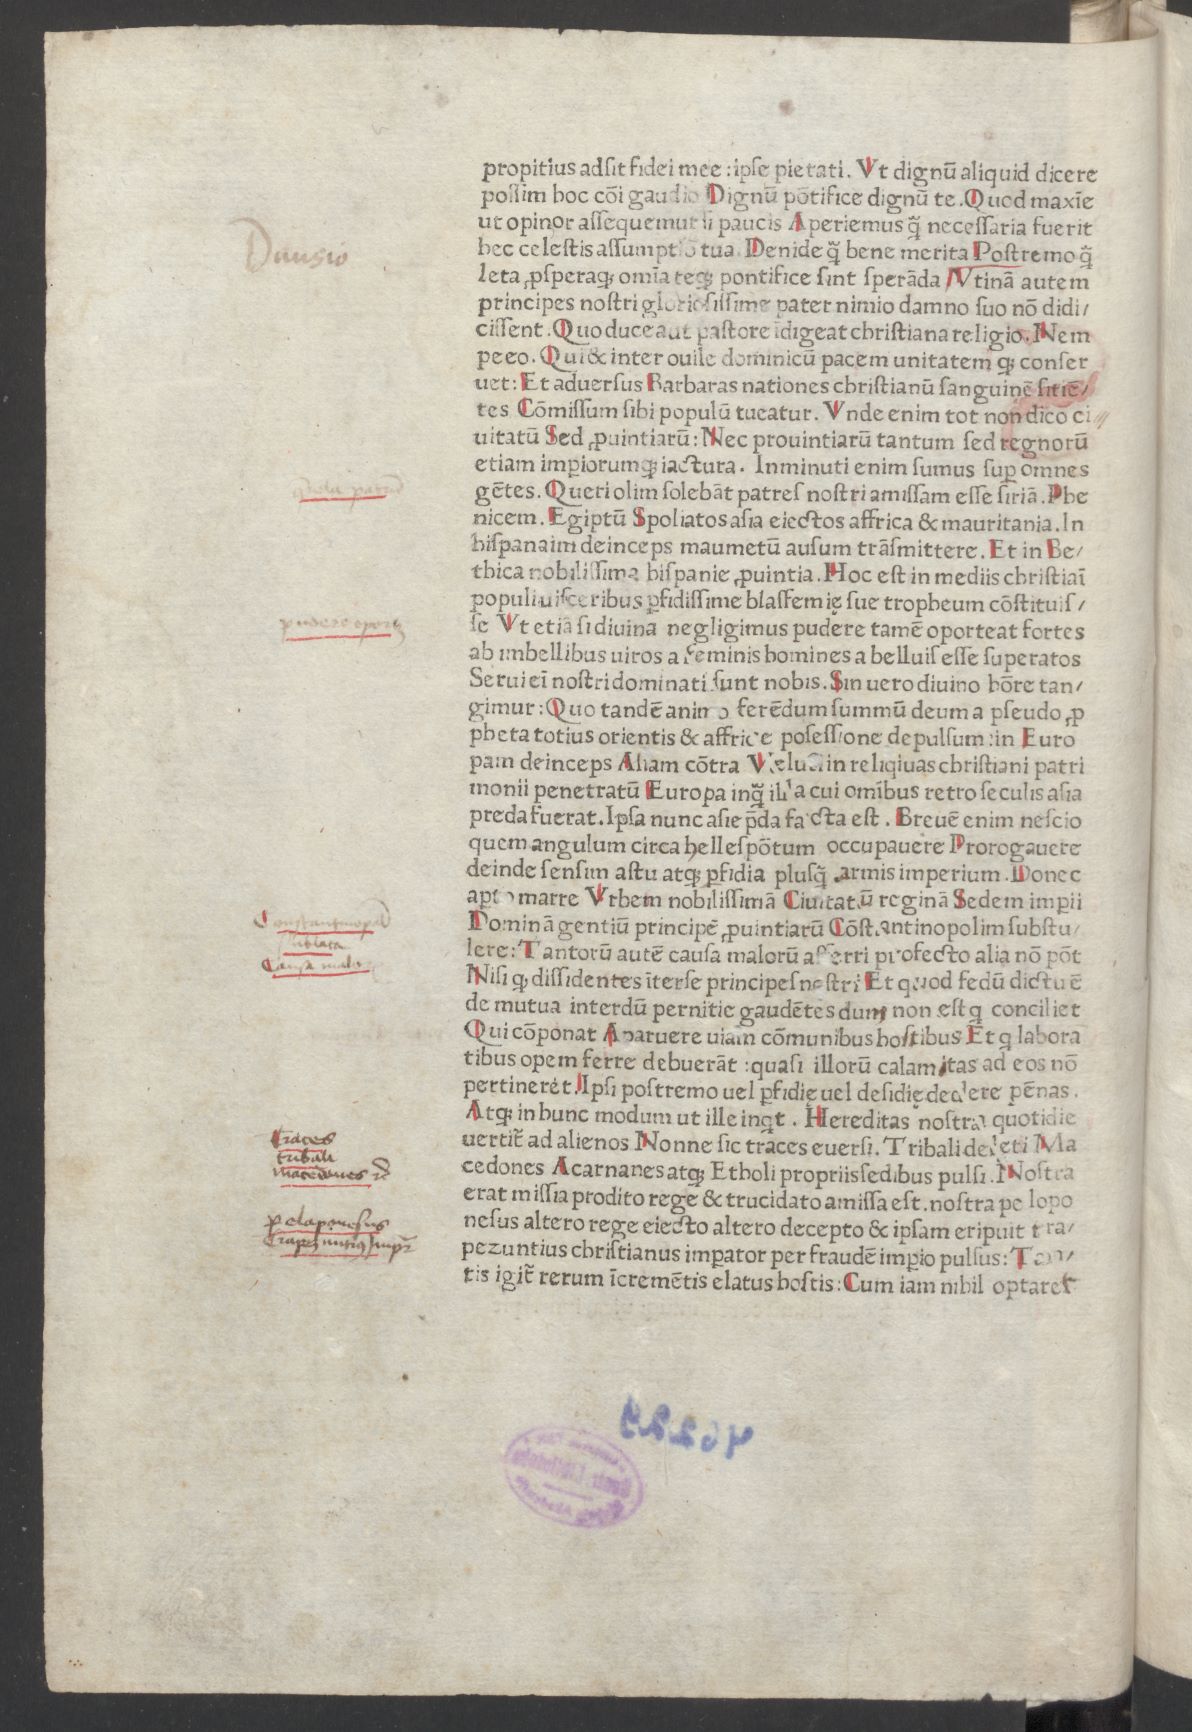 propitius adsit fidei mee : ipse pietati. Vt dignū aliquid dicere
possim hoc cōi gaudio Dignū pōtifice dignū te. Quod maxīe
ut opinor assequemur si paucis Aperiemus q̃ necessaria fuerit
hec celestis assumptiō tua Denide q̃ bene merita Postremo q̃
leta ꝓsperaqꝫ omīa teqꝫ pontifice sint sperāda Vtinā autem
principes nostri gloriosissime pater nimio damno suo nō didi/
cissent. Quo duce aut pastore īdigeat christiana religio. Nem
pe eo. Qui & inter ouile dominicū pacem unitatem qꝫ conser
uet: Et aduersus Barbaras nationes christianū sanguinē sitiē/
tes Cōmissum sibi populū tueatur. Vnde enim tot non dico ci
uitatū Sed ꝓuintiarū: Nec prouintiarū tantum sed regnorū
etiam imꝑiorumqꝫ iactura. Inminuti enim sumus suꝑ omnes
gētes. Queri olim solebāt patres nostri amissam esse siriā. Phe
nicem. Egiptū Spoliatos asia eiectos affrica & mauritania. In
hispanaim deinceps maumetū ausum trāsmittere. Et in Be/
thica nobilissima hispanie ꝓuintia. Hoc est in mediis christiaī
populi uisceribus ꝑfidissime blasfemię sue tropheum cōstituis/
se Vt etiā si diuina negligimus pudere tamē oporteat fortes
ab imbellibus uiros a feminis homines a belluis esse superatos
Serui eī nostri dominati sunt nobis. Sin uero diuino hōre tan/
gimur: Quo tandē animo ferēdum summū deum a pseudo ꝓ
pheta totius orientis & affrice posessione depulsum: in Euro
pam deinceps Asiam cōtra Velud in reliqiuas christiani patri
monii penetratū Europa inq̃ illa cui omībus retro seculis asia
preda fuerat. Ipsa nunc asie p̄da facta est. Breuē enim nescio
quem angulum circa hellespōtum occupauere Prorogauere
deinde sensim astu atqꝫ ꝑfidia plusq̃ armis imperium. Donec
apto marre Vrbem nobilissimā Ciuitatū reginā Sedem impii
Dominā gentiū principē ꝓuintiarū Cōstantinopolim substu/
lere: Tantorū autē causa malorū afferri profecto alia nō pōt
Nisi qꝫ dissidentes īterse principes nostri Et quod fedū dictu ē
de mutua interdū pernitie gaudētes dum non est q conciliet
Qui cōponat Aparuere uiam cōmunibus hostibus Et q labora
tibus opem ferre debuerāt : quasi illorū calamitas ad eos nō
pertineret Ipsi postremo uel ꝑfidię uel desidię dedere pēnas.
Atqꝫ in hunc modum ut ille inqt. Hereditas nostra quotidie
uertit̃ ad alienos Nonne sic traces euersi. Tribali deleti Ma
cedones Acarnanes atqꝫ Etholi propriis sedibus pulsi. Nostra
erat missia prodito rege & trucidato amissa est. nostra pelopo
nesus altero rege eiecto altero decepto & ipsam eripuit tra/
pezuntius christianus imꝑator per fraudē imꝑio pulsus: Tan/
tis igit̃ rerum īcremētis elatus hostis: Cum iam nihil optaret
Diuisio
pudere oport
Constantinopol
sublata
Causa malor
Traces
tribali
macedones
pelaponesus